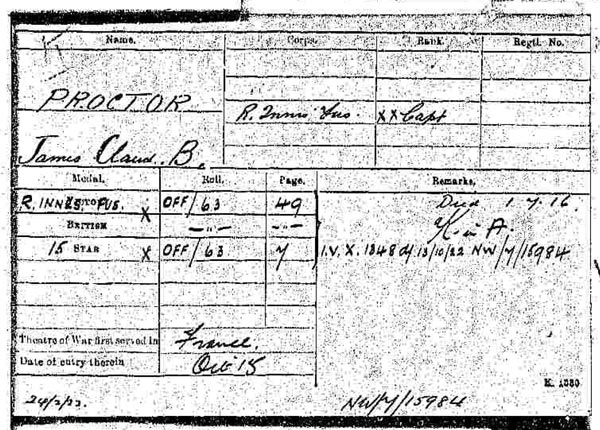 Name. Corps. Rank. Regtl. No.
PROCTOR
R. Innis' Fus. XX Capt
James Claud. B.
Medal. Roll. Page. Remarks.
R. INNIS. FUS. X OFF/63 49 Died 1.7.16.
BRITISH —"— —"— K in A.
15 STAR X OFF/63 7 I.V. X. 1348 d/ 13/10/22 NW/7/15984
Theatre of War first served in France.
Date of entry therein Oct 15
K. 1380
24/2/22. NW/7/15984